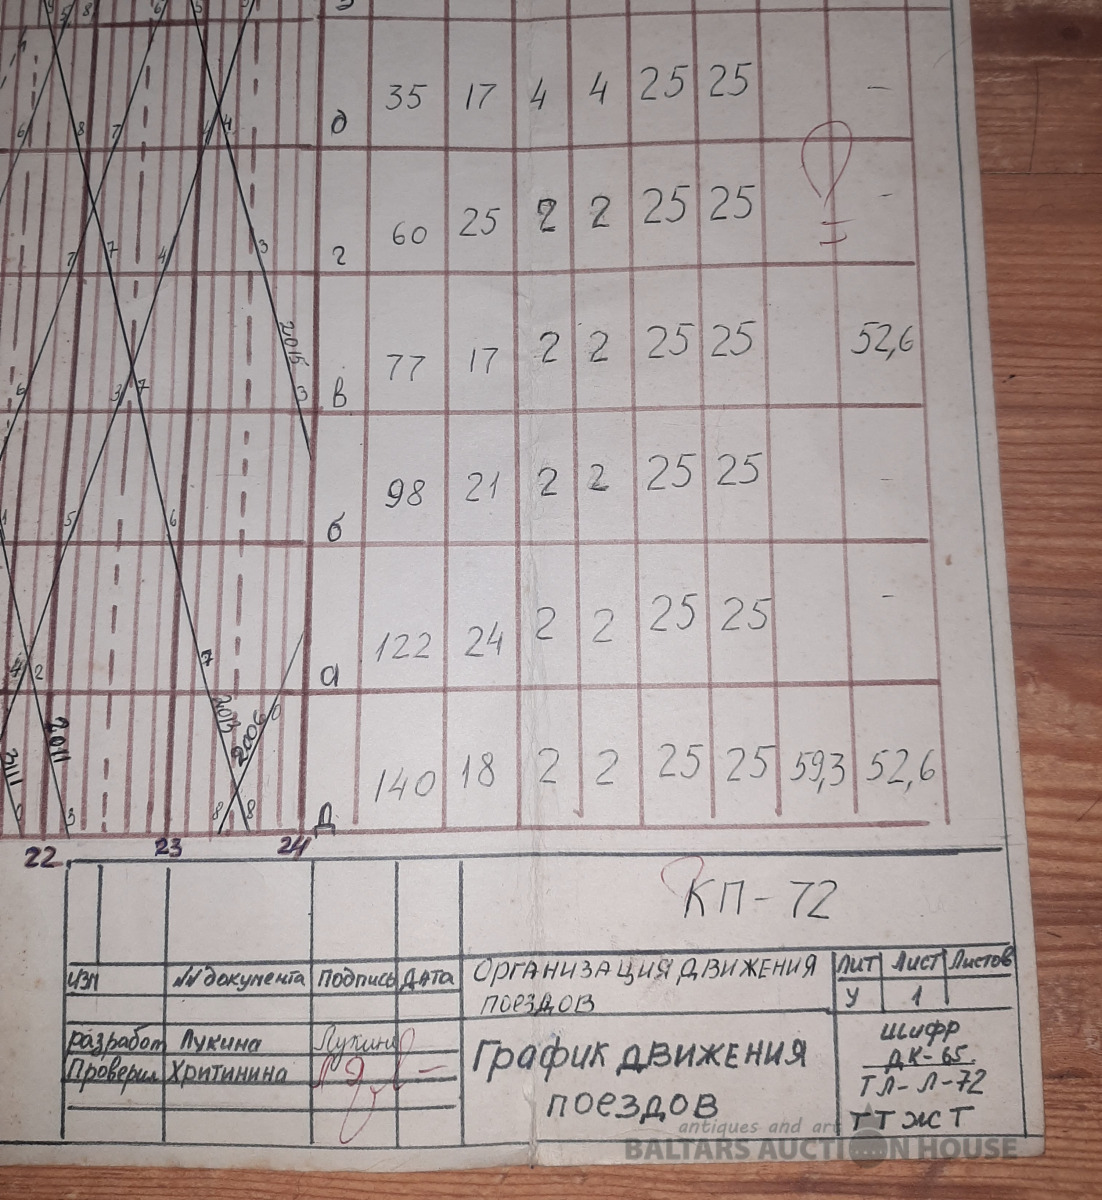 д 35 17 4 4 25 25 –
г 60 25 2 2 25 25 -
2015
в 77 17 2 2 25 25 52,6
б 98 21 2 2 25 25 -
а 122 24 2 2 25 25 -
2011 2013 2006
Д 140 18 2 2 25 25 59,3 52,6
22 23 24
КП-72
изм №документа подпись дата Организация движения поездов Лит Лист Листов
у 1
разработ Лукина Лукина
Проверил Хритинина
График движения
поездов
шифр
ДК-65
ТЛ-Л-72
ТТЖТ
antiques and art
BALTARS AUCTION HOUSE